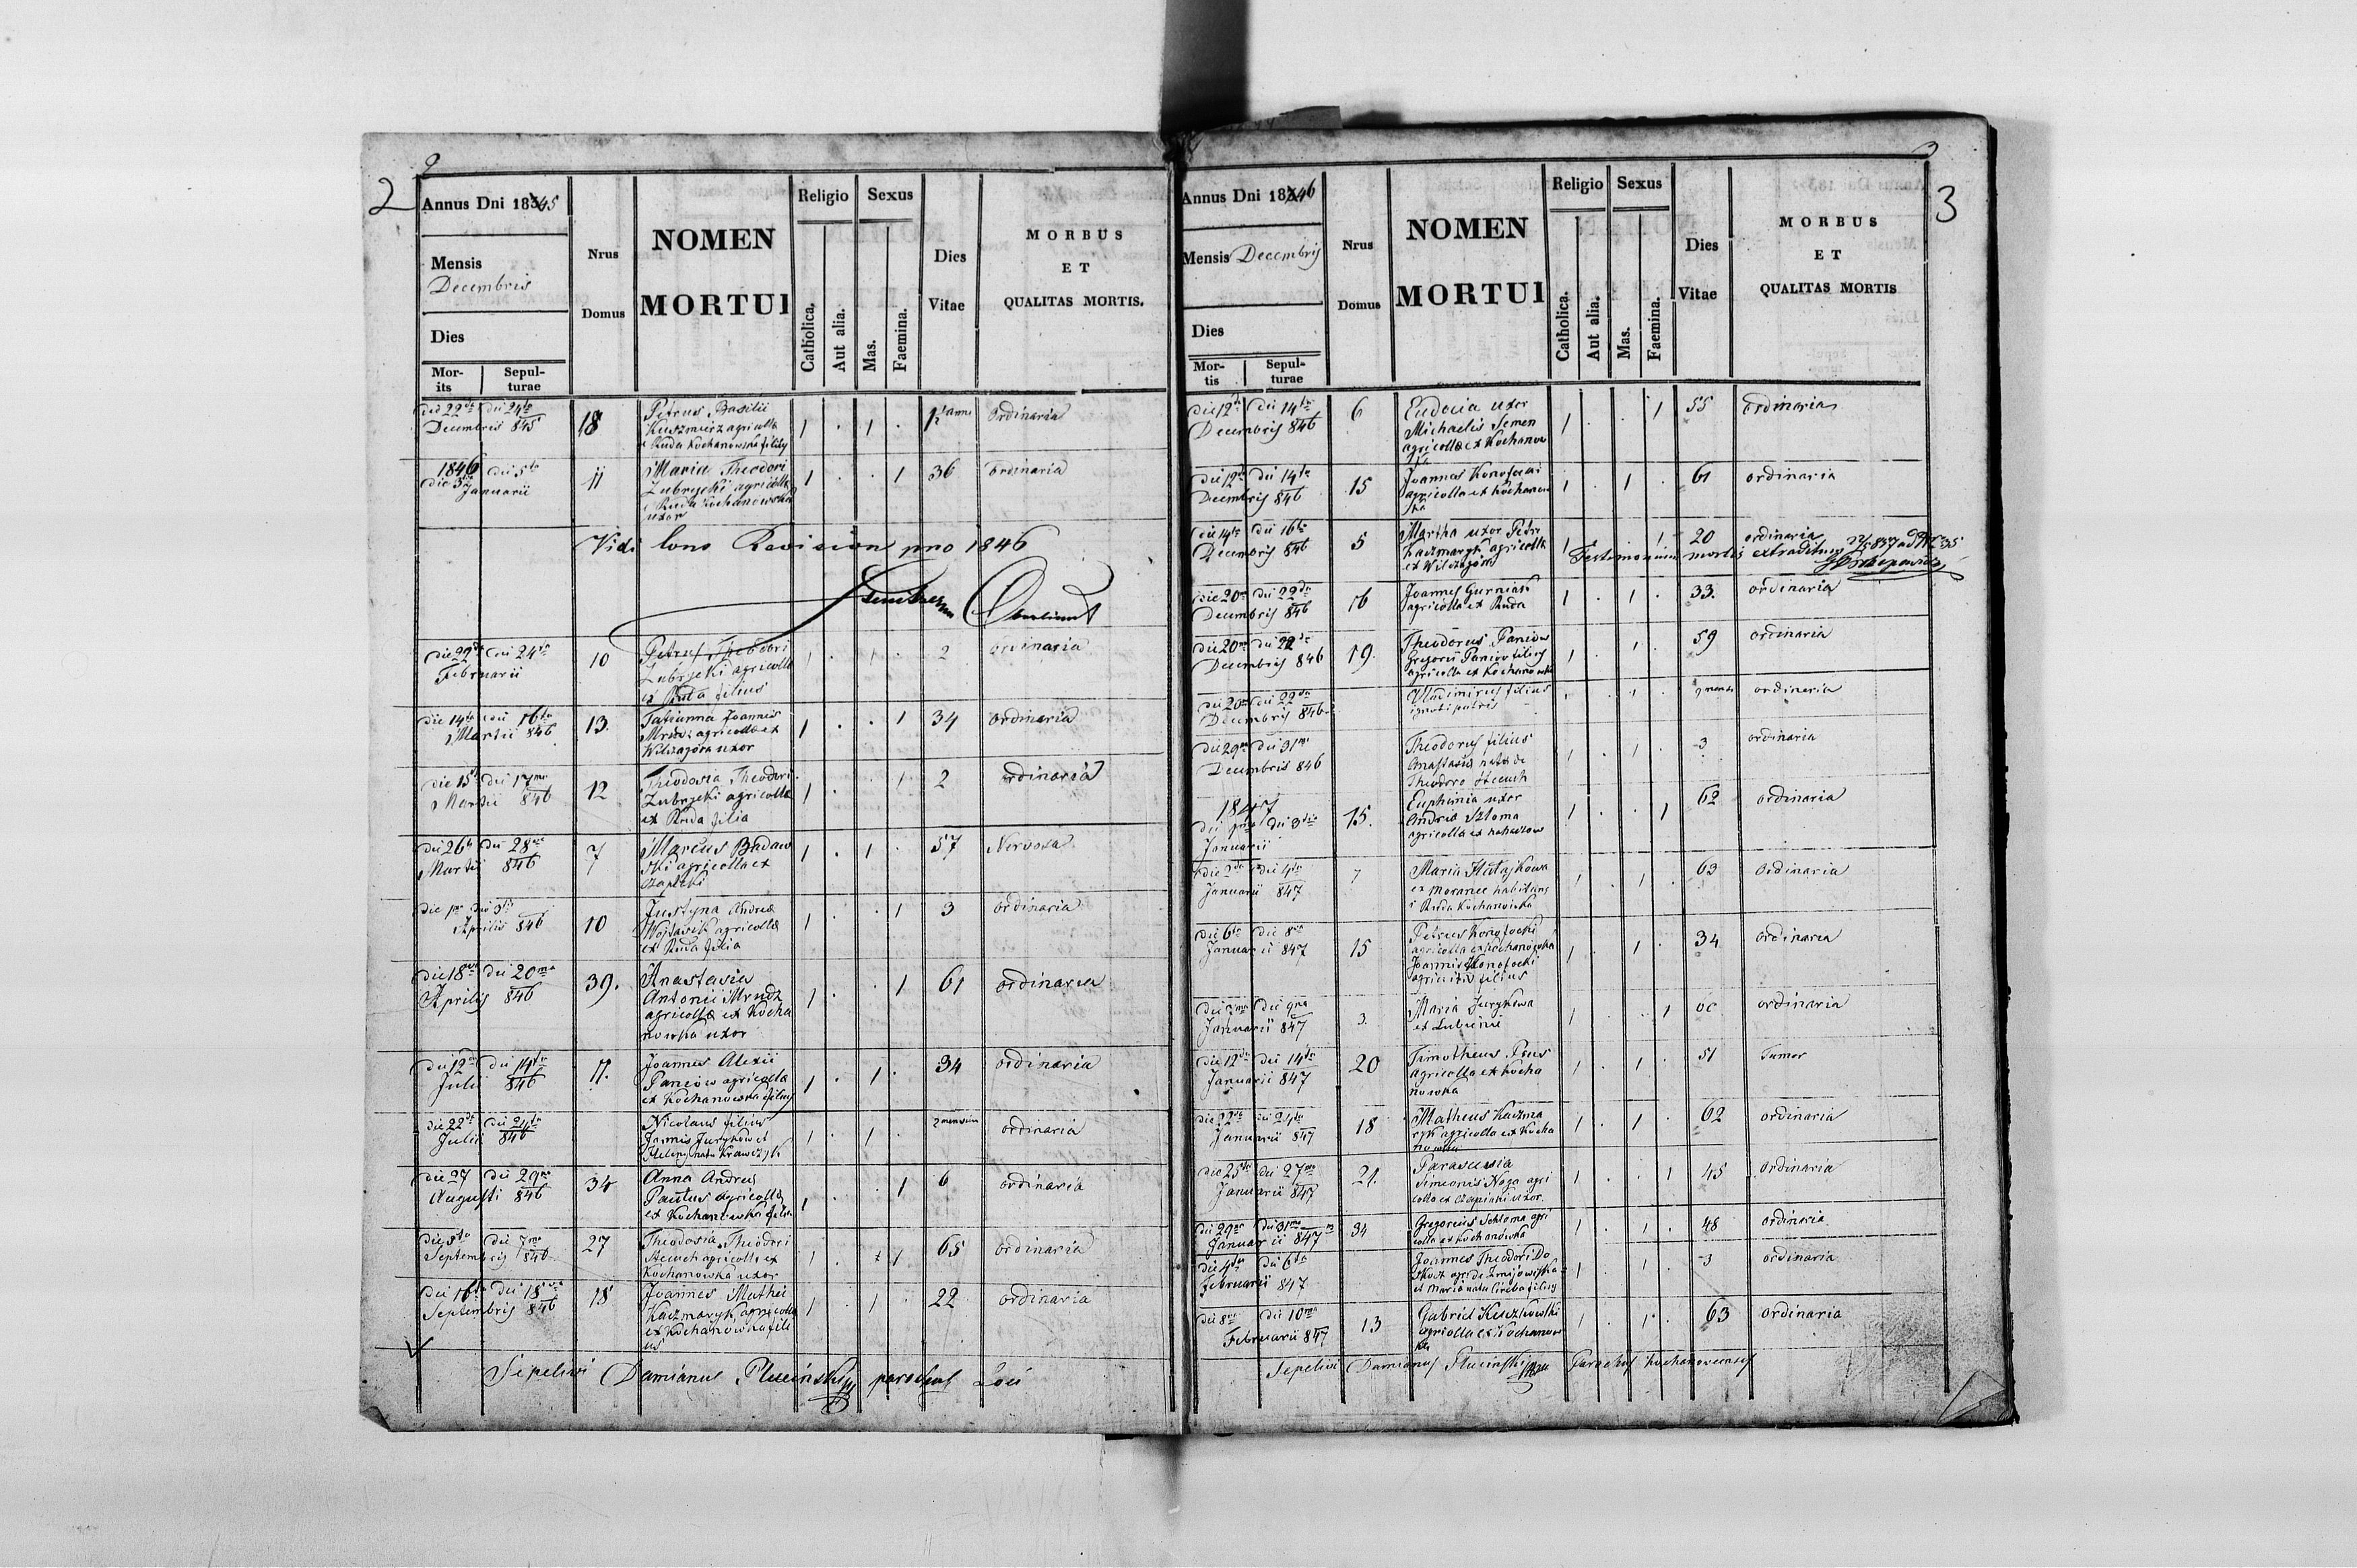 2
2
Annus Dni 1845
Mensis
Decembris
Dies
Mor-
its
Sepul-
turae
Nrus
Domus
NOMEN
MORTUI
Religio
Catholica.
Aut alia.
Sexus
Mas.
Faemina.
Dies
Vitae
MORBUS
ET
QUALITAS MORTIS.
die 22 die 24
Decembris 845
18
Petrus Basilii
agricolla
Ruda Kochanowska filius
1 . 1 .
ordinaria
1846
die 3 die 5
Januarii
11
Maria Theodori
Zubrycki agricolla
Ruda Kochanowska
uxor
1 . . 1
36
ordinaria
Vidi Revision pro 1846
die 22 die 24
Februarii
10
Petrus Theodori
Zubrycki agricolla
ex Ruda filius
1 . 1 .
2
ordinaria
die 14 die 16
Martii 846
13.
Tatianna Joannis
agricolla ex
Wilczagóra uxor
1 . . 1
34
ordinaria
die 15 die 17
Martii 846
12
Theodosia Theodori
Zubrycki agricolla
ex Ruda filia
1 . . 1
2
ordinaria
die 26 die 28
Martii 846
7
Marcus Badaw
ski agricolla ex
Czaplaki
1 . 1 .
57
Nervosa
die 1 die 3
Aprilis 846
10
Justyna Andreae
Wojtasik agricolla
ex Ruda filia
1 . . 1
3
ordinaria
die 18 die 20
Aprilis 846
39.
Anastasia
Antonii Mrudz
agricolla ex Kocha
nowka uxor
1 . . 1
61
ordinaria
die 12 die 14
Julii 846
11.
Joannes Alexii
Pancow agricolla
ex Kochanowka filius
1 . 1 .
34
ordinaria
die 22 die 24
Julii 846
Nicolaus filius
Jurykow et
Helena nata Krawczyk
1 . 1 .
2 mensium
ordinaria
die 27 die 29
Augusti 846
34
Anna Andreas
Pautus agricolla
ex Kochanowka filia
1 . . 1
6
ordinaria
die 5 die 7
Septembris 846
27
Theodosia Theodori
Stecuch agricolla ex
Kochanowka uxor
1 . 1
65
ordinaria
die 16 die 18
Septembris 846
18
Joannes Mathei
Kaczmaryk agricolla
ex Kochanowka fili
us
1 . 1 .
22
ordinaria
Sepelivi Damianus Plucinski parochus Loci
3
Annus Dni 1846
Mensis Decembris
Dies
Mor-
tis
Sepul-
turae
Nrus
Domus
NOMEN
MORTUI
Religio
Catholica.
Aut alia.
Sexus
Mas.
Faemina.
Dies
Vitae
MORBUS
ET
QUALITAS MORTIS
die 12 die 14
Decembris 846
6
Eudocia uxor
Michaelis Semen
agricolla ex Kochanow
ka
1 . . 1
55
ordinaria
die 12 die 14
Decembris 846
15
Joannes Konofocki
agricolla ex Kochanow
ka
1 . 1 .
61
ordinaria
die 14 die 16
Decembris 846
5
Martha uxor Petri
Kaczmaryk agricolla
ex Wilczagóra
1 . . 1
20
ordinaria
Testimonium mortis extraditum
die 20 die 22
Decembris 846
16
Joannes Gurniak
agricolla ex Ruda
1 . 1 .
33.
ordinaria
die 20 die 22
Decembris 846
19.
Theodorus Pancow
Gregorii Pancow filius
agricolla ex Kochanowka
1 . 1 .
59
ordinaria
die 20 die 22
Decembris 846
Wladimirus filius
ignoti patris
1 . 1 .
ordinaria
die 29 die 31
Decembris 846
Theodorus filius
Anastasia nata de
Theodoro Stecuch
1 . 1 .
3
ordinaria
1847
die 1 die 3
Januarii
15.
Euphimia uxor
Andrea Szloma
agricolla ex
1 . . 1
62
ordinaria
die 2 die 4
Januarii 847
7
Maria
ex Morance habitans
Ruda Kochanowska
1 . 1 .
63
ordinaria
die 6 die 8
Januarii 847
15
Petrus Konofocki
agricolla ex Kochanowka
Joannis Konofocki
agricolae filius
1 . 1 .
34
ordinaria
die 7 die 9
Januarii 847
3.
Maria Jurykowa
ex Lubinie
1 . . 1
ordinaria
die 12 die 14
Januarii 847
20
Timotheus Pous
agricolla ex Kocha
nowka
1 . 1 .
51
Tumor
die 22 die 24
Januarii 847
18
Matheus Kaczma
ryk agricolla ex Kocha
nowka
1 . 1 .
62
ordinaria
die 25 die 27
Januarii 847
21.
Parascevia
Simeonis Noga agri
colla ex Czaplaki uxor
1 . . 1
45
ordinaria
die 29 die 31
Januarii 847
34
Gregorius Schloma agri
colla ex Kochanowka
1 . 1 .
48
ordinaria
die 4 die 6
Februarii 847
Joannes Theodori Do
skocz agr. de Zmijowiska
et Maria nata filius
1 . 1 .
3
ordinaria
die 8 die 10
Februarii 847
13
Gabriel Kuczkowski
agricolla ex Kochanow
ka
1 . 1 .
63
ordinaria
Sepelivi Damianus Plucinski Parochus Kochanowcensis